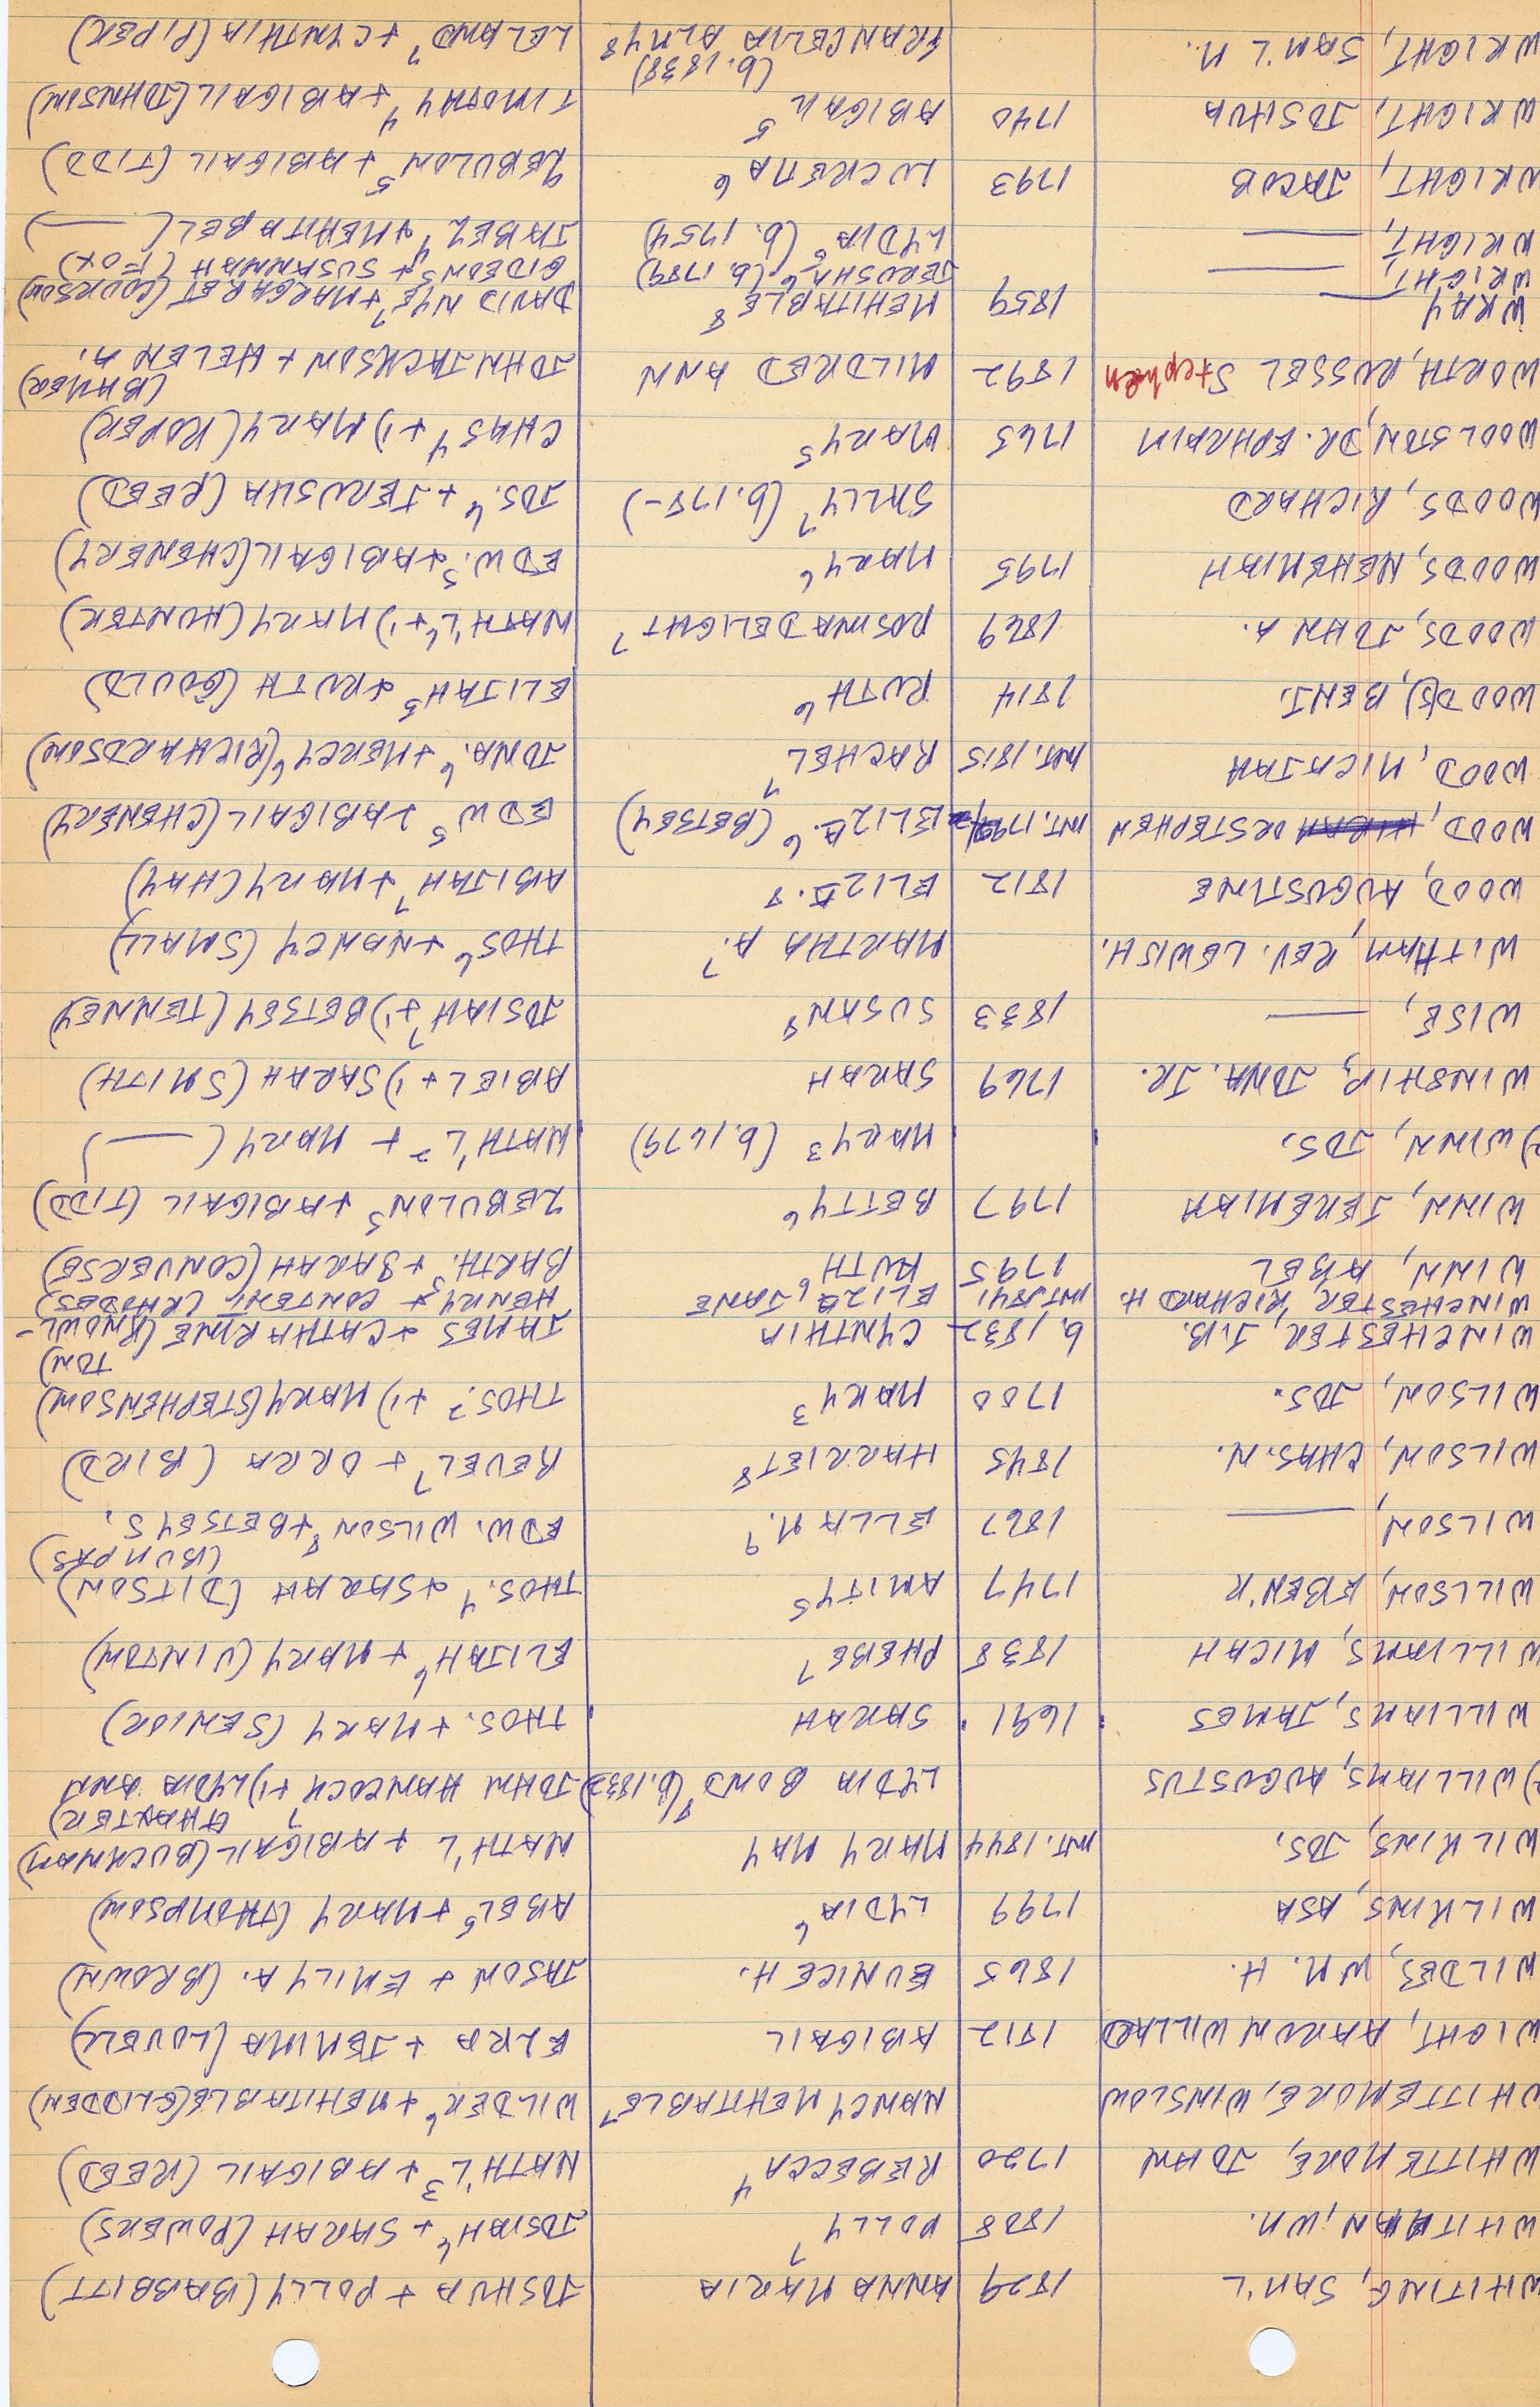 WHITING, SAM'L 1829 ANNA MARIA JOSHUA + POLLY (BABBITT)
WHITMAN, WM. 1808 POLLY 7 JOSIAH 6 + SARAH (POWERS)
WHITTEMORE, JOHN 1720 REBECCA 4 NATH'L 3 + ABIGAIL (REED)
WHITTEMORE, WINSLOW NANCY MEHITABLE 7 WILDER 6 + MEHITABLE (GLIDDEN)
WIGHT, AARON WILLARD 1812 ABIGAIL EZRA + JEMIMA (LOVELL)
WILDES, WM. H. 1865 EUNICE H. JASON + EMILY A. (BROWN)
WILKINS, ASA 1799 LYDIA 6 ABEL 5 + MARY (THOMPSON)
WILKINS, JOS. INT. 1844 MARY MAY NATH'L + ABIGAIL (BUCKMAN)
2) WILLIAMS, AUGUSTUS LYDIA BOND 8 (b. 1832) JOHN HANCOCK 7 + 1) LYDIA ANN (THAXTER)
WILLIAMS, JAMES 1691 SARAH THOS. + MARY (SENIOR)
WILLIAMS, MICAH 1838 PHEBE 7 ELIJAH 6 + MARY (VINTON)
WILLSON, EBEN'R 1747 AMITY 5 THOS. 4 + SARAH (DITSON)
WILSON, —— 1867 ELLA M. 9 EDW. WILSON 8 + BETSEY S. (BUMPAS)
WILSON, CHAS. N. 1845 HARRIET 8 REUEL 7 + ORRA (BIRD)
WILSON, JOS. 1700 MARY 3 THOS. 2 + 1) MARY (STEPHENSON)
WINCHESTER, J.B. b. 1832 CYNTHIA JAMES + CATHARINE (KNOWL-TON)
WINCHESTER, RICHARD H. INT. 1841 ELIZB, JANE HENRY + CONTENT (RHODES)
WINN, ABEL 1795 RUTH 6 BARTH. 5 + SARAH (CONVERSE)
WINN, JEREMIAH 1797 BETTY 6 ZEBULON 5 + ABIGAIL (TIDD)
2) WINN, JOS. MARY 3 (b. 1679) NATH'L 2 + MARY (——)
WINSHIP, JONA. JR. 1769 SARAH ABIEL + 1) SARAH (SMITH)
WISE, —— 1833 SUSAN 8 JOSIAH 7 + 1) BETSEY (TENNEY)
WITHAM, REV. LEWIS H. MARTHA A. 7 THOS 6 + NANCY (SMALL)
WOOD, AUGUSTINE 1812 ELIZB. 8 ABIJAH 7 + MARY (HAY)
WOOD, OR STEPHEN INT. 1792 ELIZB. 6 (BETSEY) EDW 5 + ABIGAIL (CHENERY)
WOOD, MICAJAH INT. 1815 RACHEL 7 JONA. 6 + MERCY 6 (RICHARDSON)
WOOD(S), BENJ. 1814 RUTH 6 ELIJAH 5 + RUTH (GOULD)
WOODS, JOHN A. 1869 ROSINA DELIGHT 7 NATH'L 6 + 1) MARY (HUNTER)
WOODS, NEHEMIAH 1795 MARY 6 EDW. 5 + ABIGAIL (CHENERY)
WOODS, RICHARD SALLY 7 (b. 178-) JOS. 6 + JERUSHA (REED)
WOOLSTON, DR. EPHRAIM 1765 MARY 5 CHAS 4 + 1) MARY (ROPER)
WORTH, RUSSEL Stephen 1892 MILDRED ANN JOHN JACKSON + HELEN A. (BAMER)
WRAY —— 1859 MEHITABLE 8 DAVID NYE 7 + MARGARET (COOKSON)
WRIGHT, —— JERUSHA 6 (b. 1789) GIDEON 5 + SUSANNAH (FOX)
WRIGHT, —— LYDIA 5 (b. 1754) JABEZ 4 + MEHITABEL (——)
WRIGHT, JACOB 1793 LUCRETIA 6 ZEBULON 5 + ABIGAIL (TIDD)
WRIGHT, JOSHUA 1740 ABIGAIL 5 TIMOTHY 4 + ABIGAIL (JOHNSON)
WRIGHT, SAM'L N. FRANCELIA ALMY 8 (b. 1838) LELAND 7 + CYNTHIA (PIPER)